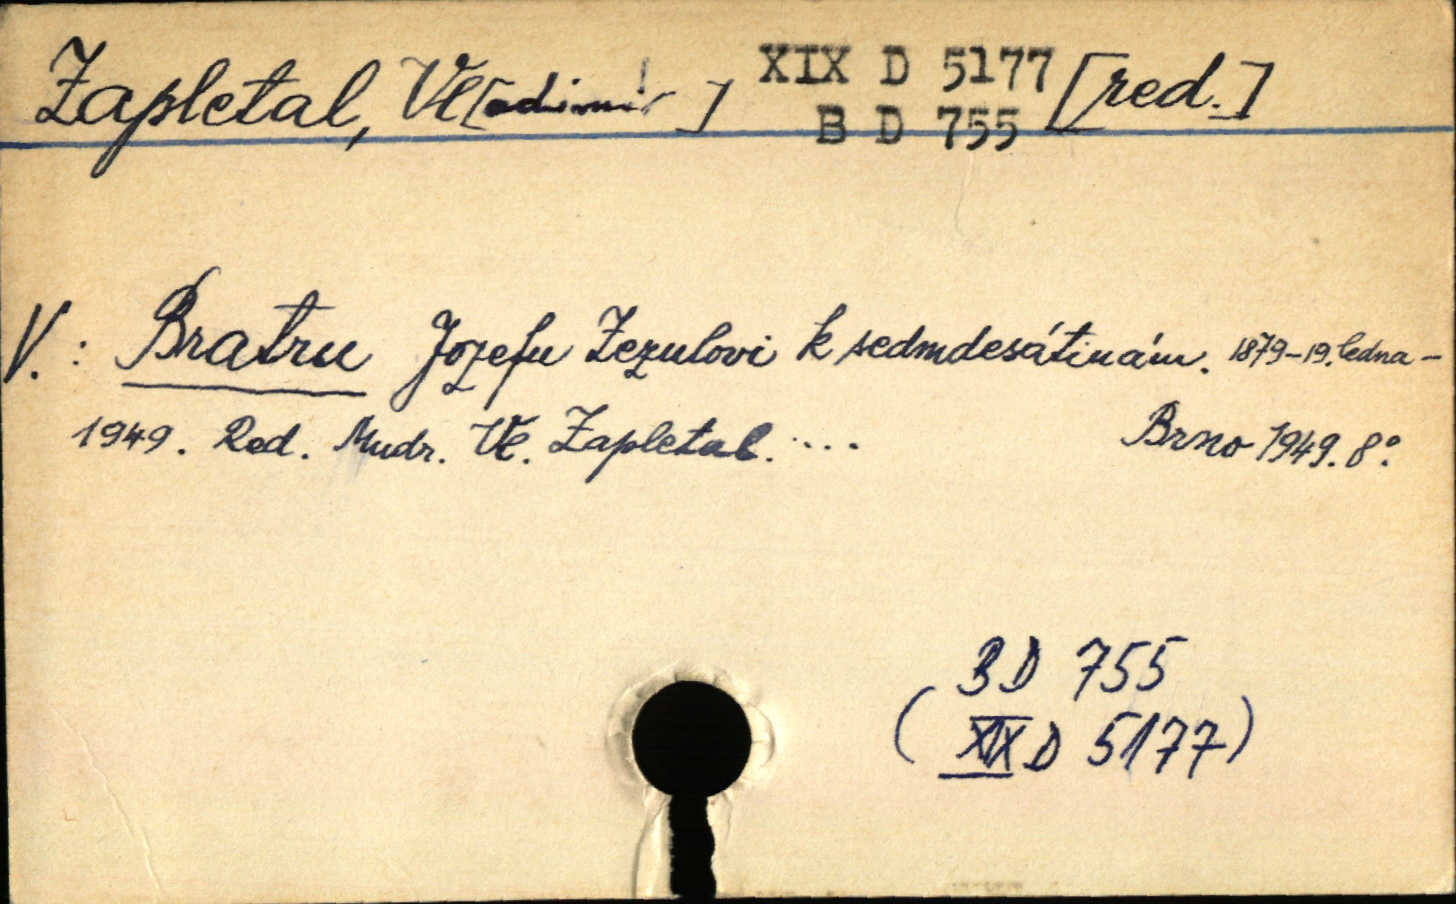 Zapletal, Vl[adimír] XIX D 5177 [red.]
B D 755
V.: Bratru Jozefu Zezulovi k sedmdesátinám. 1879-19. ledna-
1949. Red. Mudr. Vl. Zapletal. .... Brno 1949. 8°.
BD 755
(XIX D 5177)